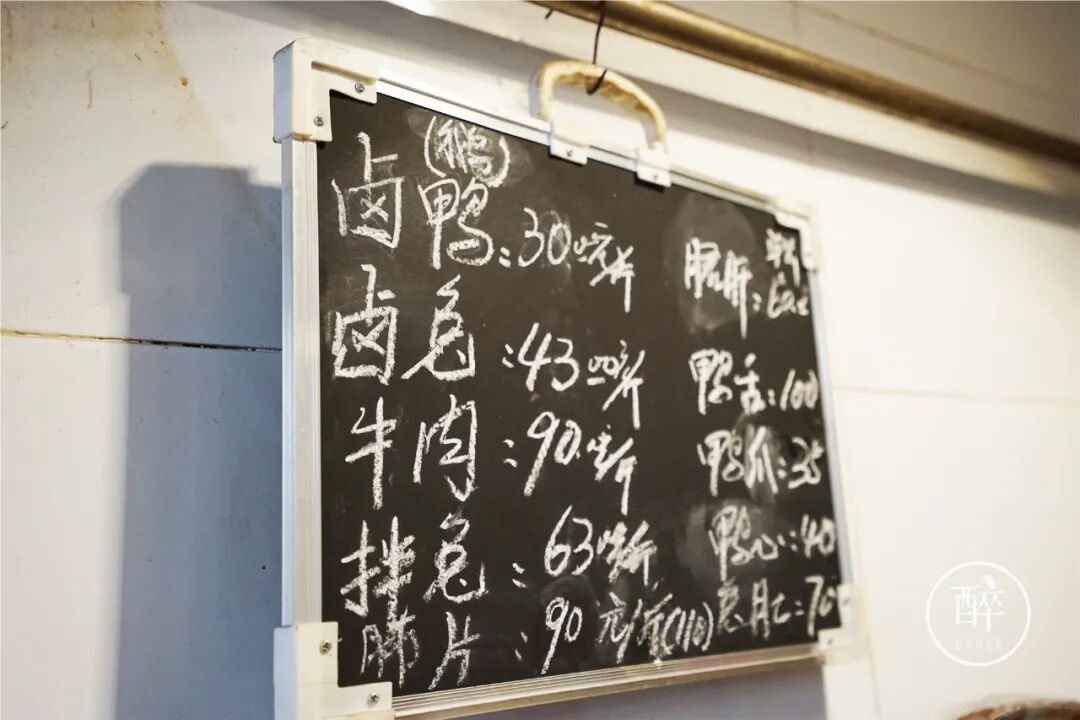 (鹅)
卤鸭:30元/斤
卤兔:43元/斤
牛肉:90元/斤
拌兔:63元/斤
肺片:90元/斤(110)
鸭舌:100
鸭爪:35
鸭心:40
70
醉
DRUNK